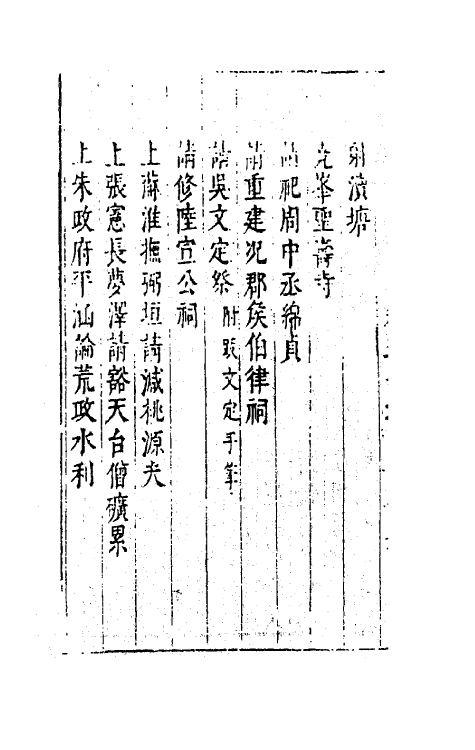 射瀆塘
堯峯聖壽寺
請祀周中丞綿貞
請重建况郡矦伯律祠
請吳文定祭附跋文定手筆
請修陸宣公祠
上蘇淮撫弼垣請減桃源夫
上張憲長夢澤請豁天台僧礦累
上朱政府平涵論荒政水利